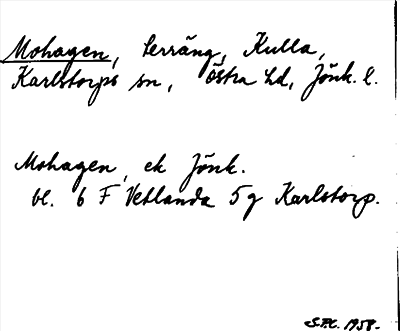 Mohagen, terräng, Kulla,
Karlstorps sn, Östra hd, Jönk. l.
Mohagen, ek Jönk.
bl. 6 F Vetlanda 5 g Karlstorp.
1958.